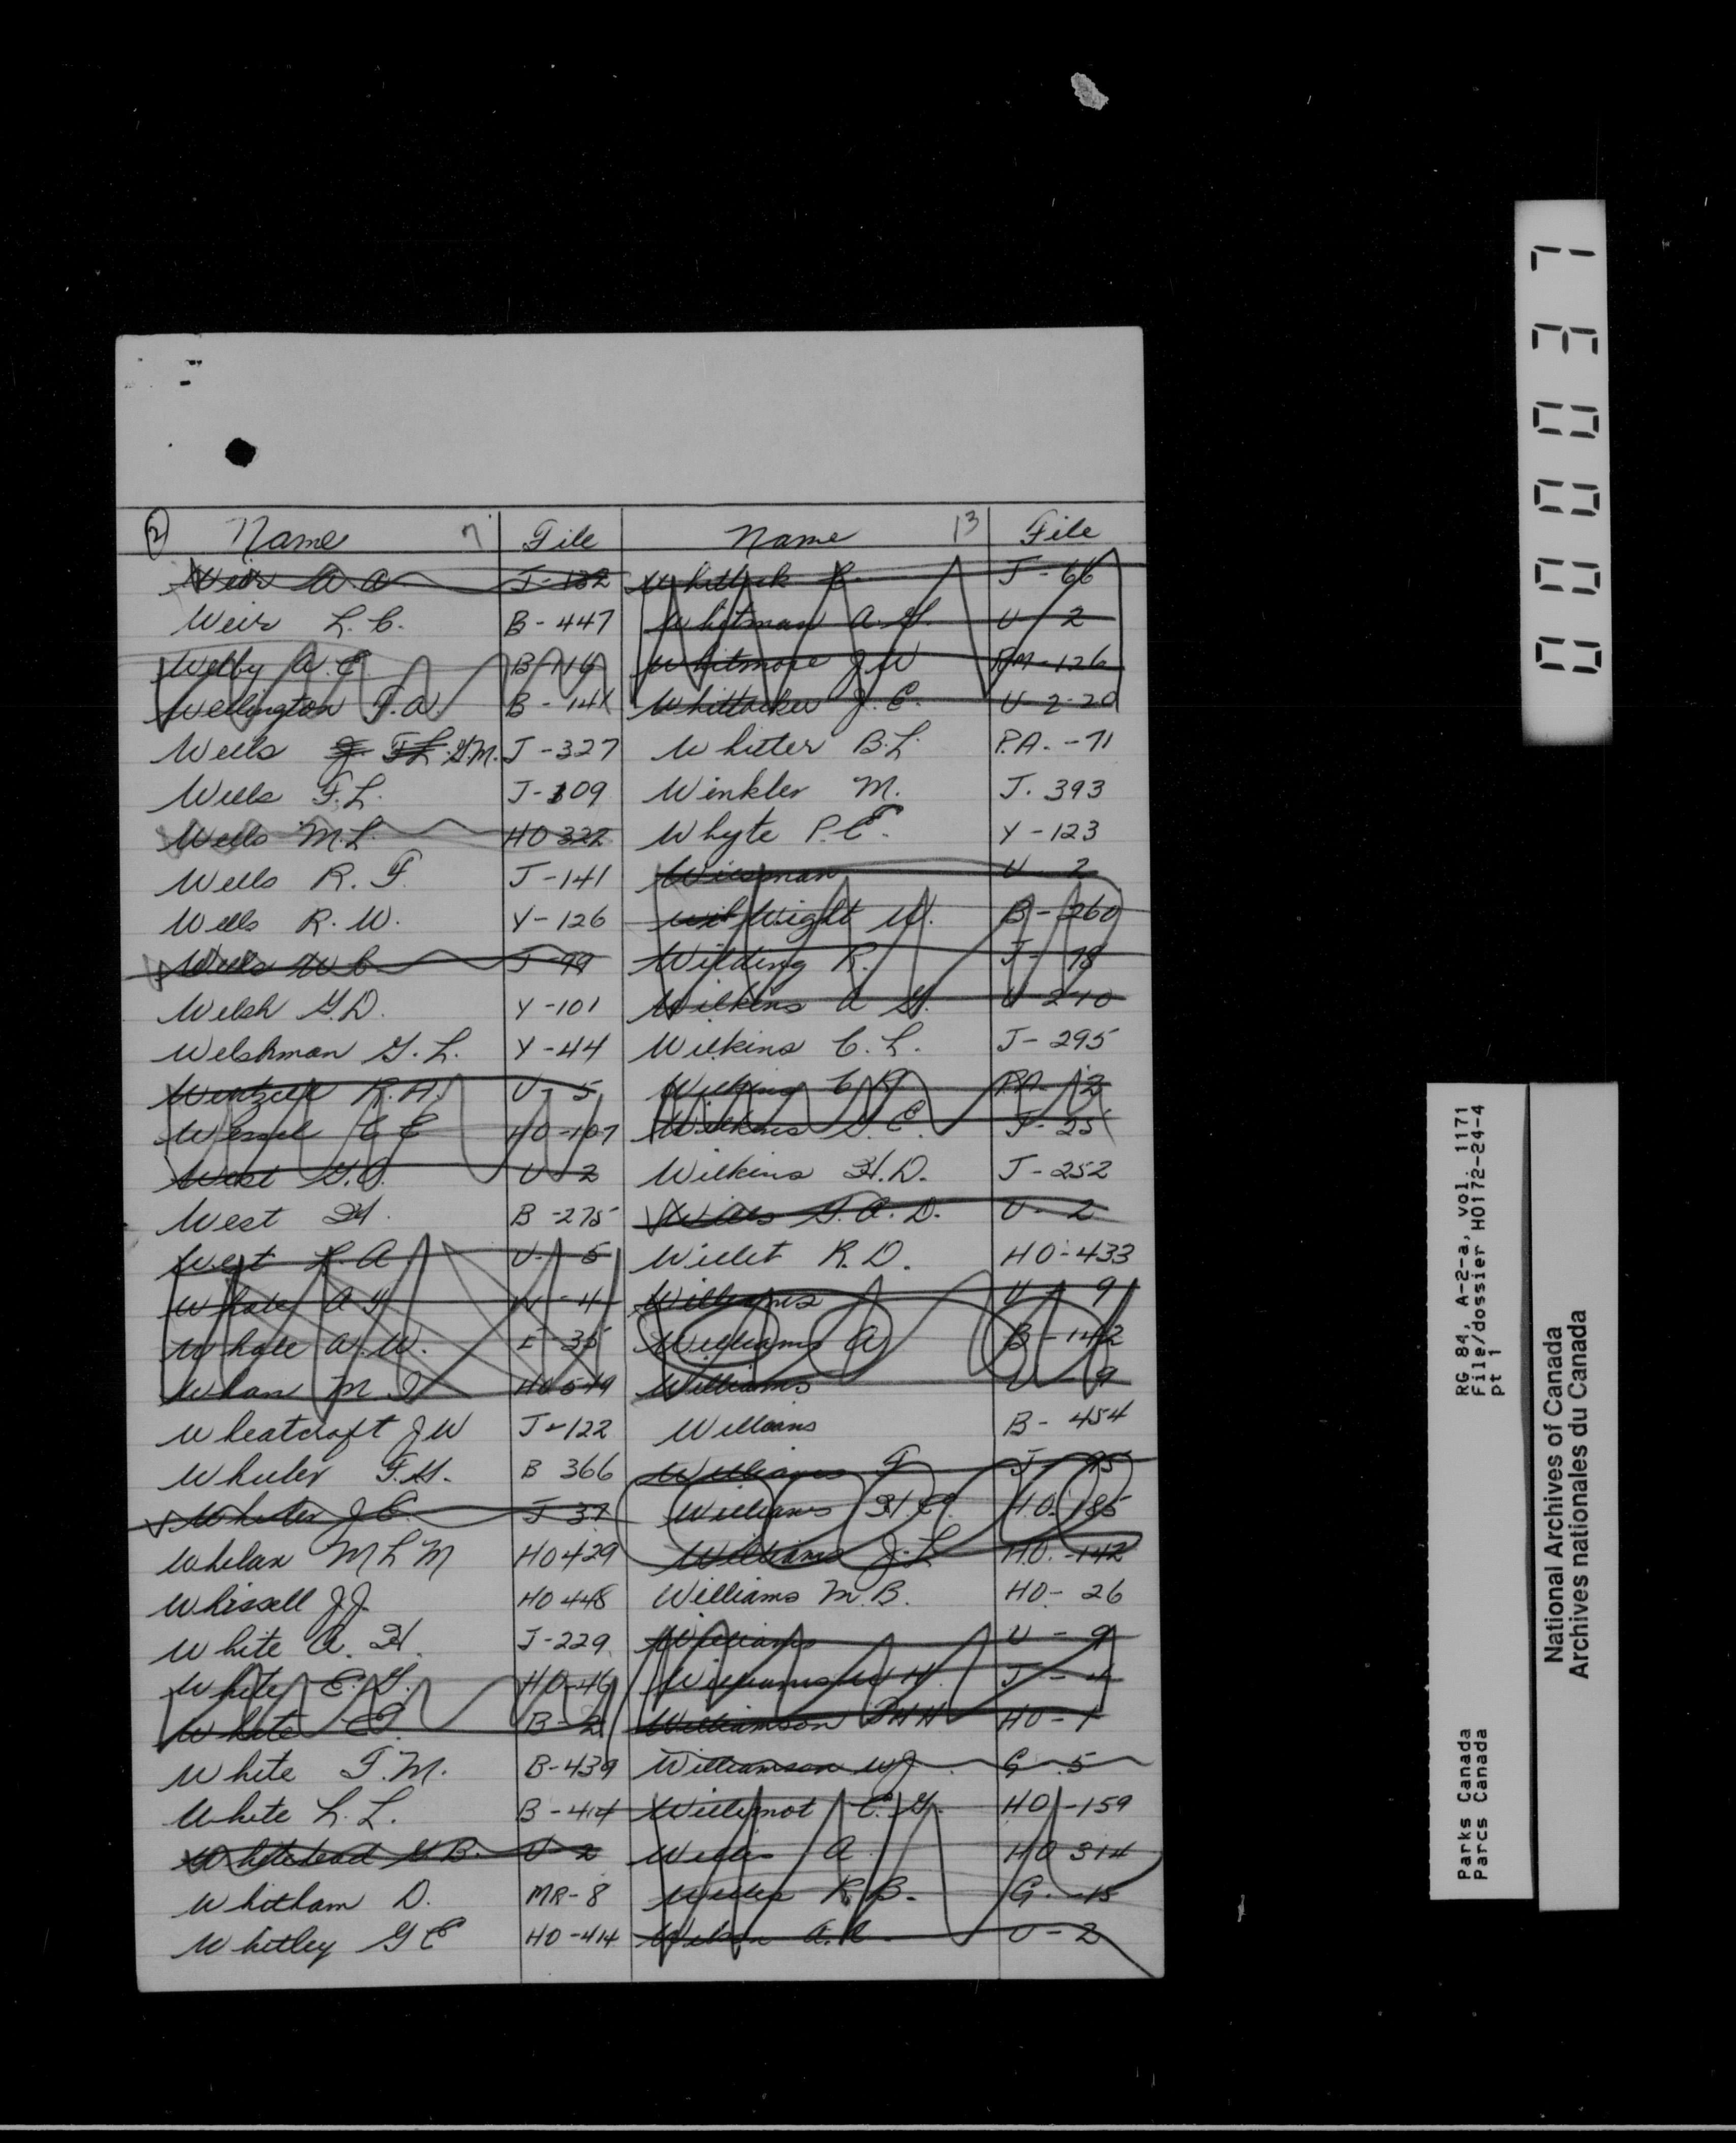 ② Name 7 File Name 13 File
Weir A. A. J-132 Whittick J-66
Weir L. C. B-447 Whitman A. G. U 2
Welby A. E. B-116 Whitmore J W RM-126
Wellington F. A B-141 Whittacker J. C. U-2-20
Wells G.M. J-327 Whitter B.L. P.A.-71
Wells F.L. J-309 Winkler M. J. 393
Wells M.L. HO 322 Whyte P.E. Y-123
Wells R. F. J-141 Wiesman U 2
Wells R. W. Y-126 Wight W. B-260
Wells W C J-99 Wilding R. J-78
Welsh G.D. Y-101 Wilkins A G. U-2-10
Welshman G. L. Y-44 Wilkins C. L. J-295
Wentzell R.A. U-5 Wilkins C R PA-12
Wessel C E HO-107 Wilkins G. E. J-25
West G.O. U-2 Wilkins H.D. J-252
West H. B-275 Wills G. A. D. U-2
West L. A U-5 Willet R. D. HO-433
Whale A F -4 Williams U-9
Whale A. W. E-35 Williams A B-142
Wham M. J HO 549 Williams U-9
Wheatcroft J W J-122 Williams B-454
Wheeler F.H. B 366 Williams F J-95
J 37 Williams H. E. HO.-185
Whelan M L M HO 429 Williams J-L HO.-142
Whissell J J. HO 448 Williams M.B. HO-26
White A. H. J-229 Williams U-9
White E. G. HO-46 Williams W H. J-4
White B-2 Williamson HO-1
White F. M. B-439 Williamson W J G. 5
White L. L. B-414 Willimot C. G. HO-159
Whitehead G B. U-2 Willis A. HO 314
Whitham D. MR-8 Willis R. B. G.-15
Whitley G E HO-414 Wilson A. U-2
000037
RG 84, A-2-a, vol. 1171
File/dossier HO172-24-4
pt 1
Parks Canada
Parcs Canada
National Archives of Canada
Archives nationales du Canada